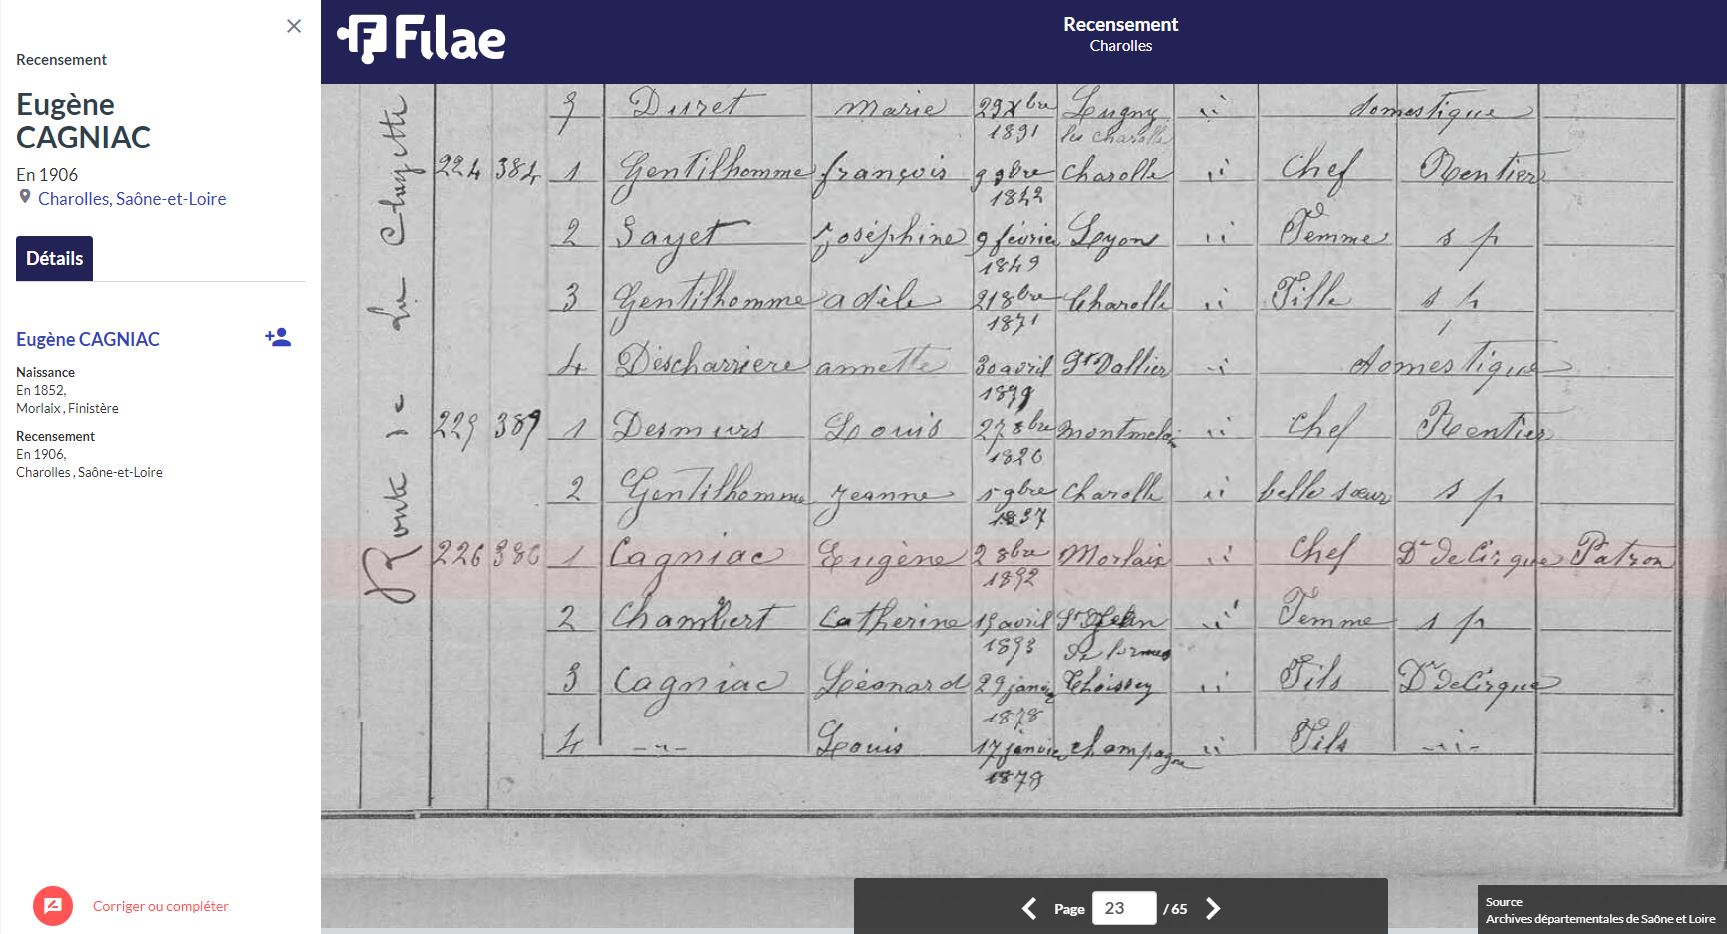 Recensement
Eugène
CAGNIAC
En 1906
Charolles, Saône-et-Loire
Détails
Eugène CAGNIAC
Naissance
En 1852,
Morlaix , Finistère
Recensement
En 1906,
Charolles , Saône-et-Loire
Corriger ou compléter
Filae
Recensement
Charolles
Route de
Duret marie 29 Xbre 1891 Lugny les charolle ii domestique
224 384 1 Gentilhomme françois 9 9bre 1842 Charolle ii Chef Rentier
2 Sayet Joséphine 9 février 1849 Lyon ii Femme s p
3 Gentilhomme adèle 21 8bre 1871 Charolle ii Fille s p
4 Descharriere annette 30 avril St Vallier ii domestique
225 385 1 Desmurs Louis 27 8bre 1820 ii Chef Rentier
2 Gentilhomme Jeanne 9bre 1837 Charolle ii belle sœur s p
226 386 1 Cagniac Eugène 2 8bre 1852 Morlaix ii Chef Dr De Cirque Patron
2 Chambert Catherine 15 avril 1853 ii Femme s p
3 Cagniac Léonard 29 janvier Thoissey ii Fils Dr De Cirque
4 -"- Louis 17 janvier champagne ii Fils -ii-
Page 23 / 65
Source
Archives départementales de Saône et Loire